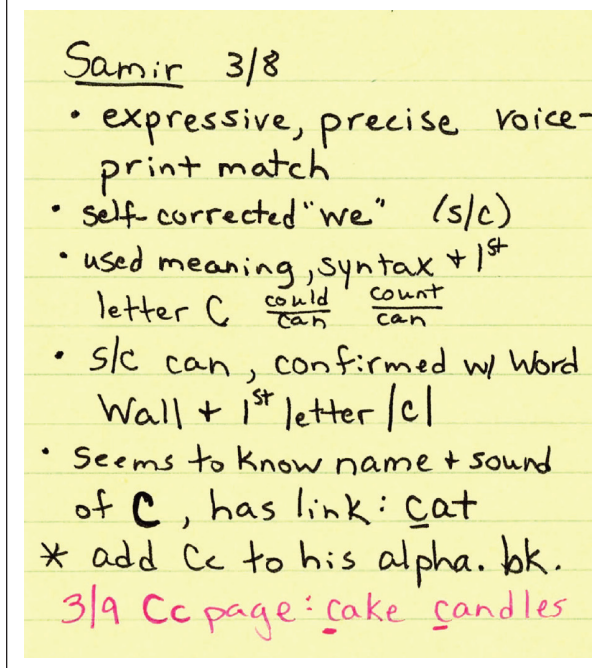 Samir 3/8
• expressive, precise voice-
print match
• self-corrected "we" (s/c)
• used meaning, syntax + 1st
letter C could/can count/can
• s/c can, confirmed w/ Word
Wall + 1st letter |c|
• Seems to know name + sound
of C, has link: cat
* add Cc to his alpha. bk.
3/9 Cc page: cake candles